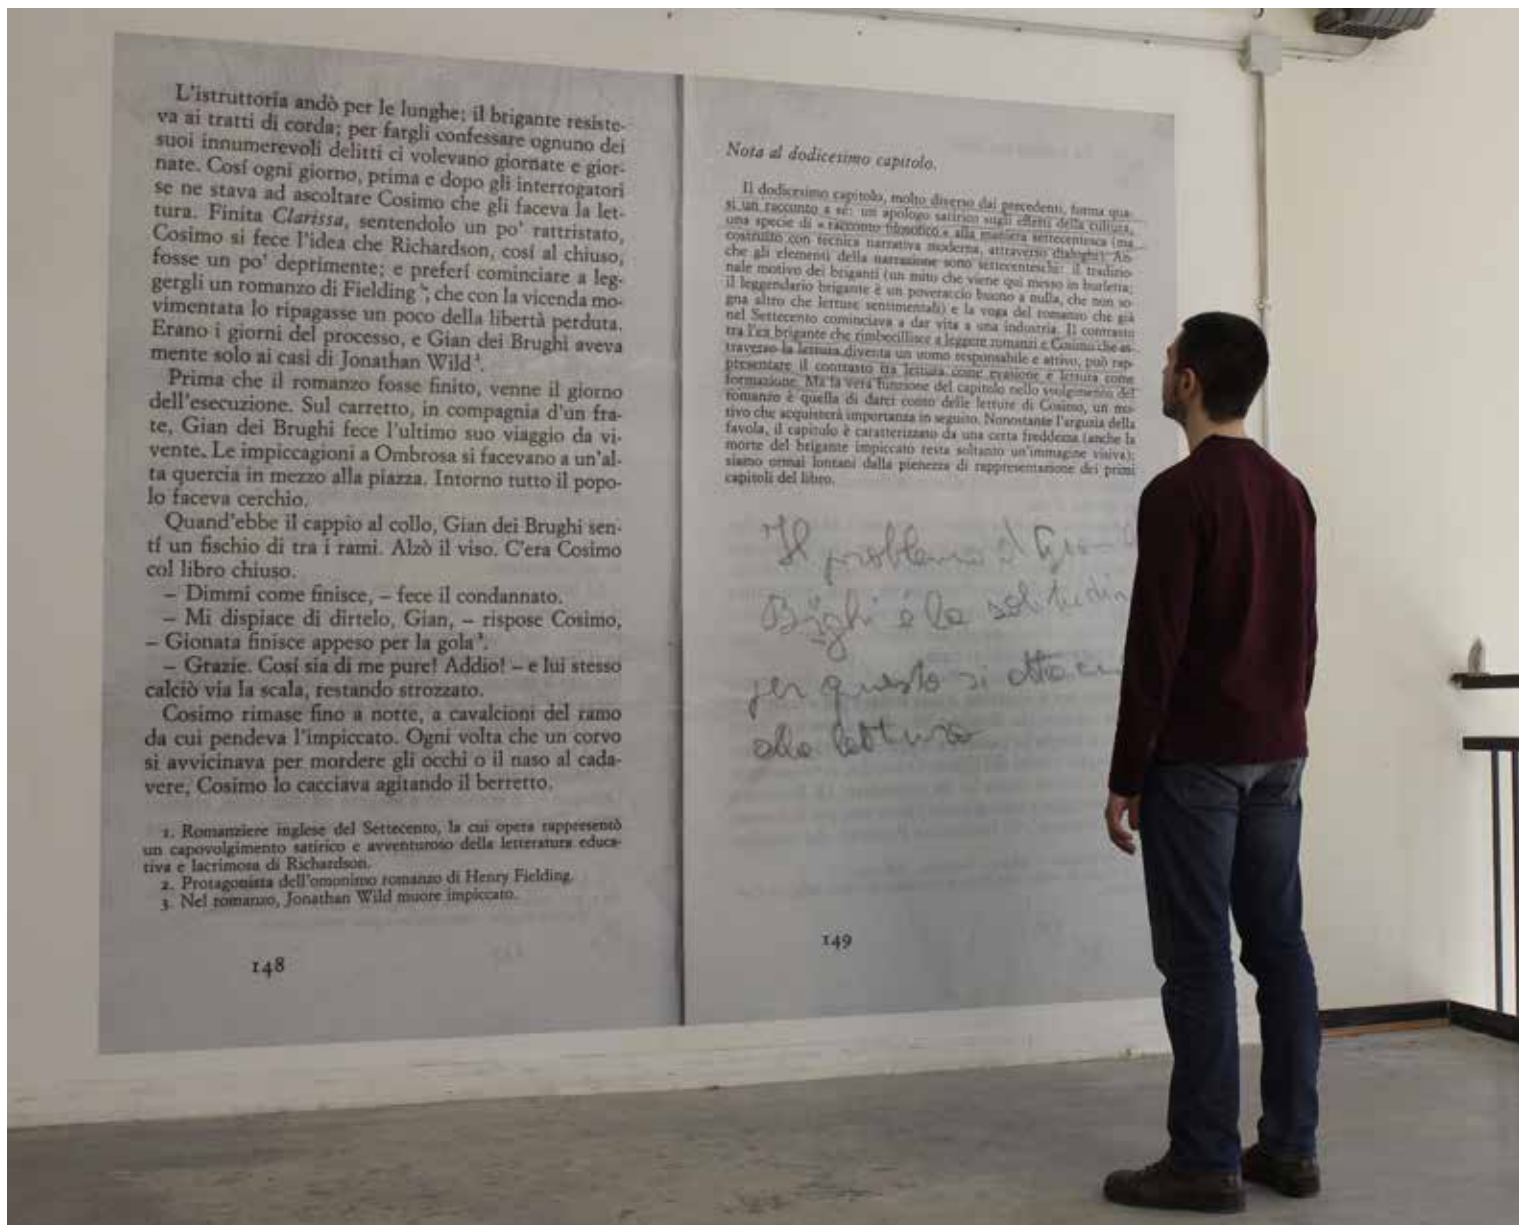 L'istruttoria andò per le lunghe; il brigante resiste-
va ai tratti di corda; per fargli confessare ognuno dei
suoi innumerevoli delitti ci volevano giornate e gior-
nate. Cosí ogni giorno, prima e dopo gli interrogatori
se ne stava ad ascoltare Cosimo che gli faceva la let-
tura. Finita Clarissa, sentendolo un po' rattristato,
Cosimo si fece l'idea che Richardson, cosí al chiuso,
fosse un po' deprimente; e preferí cominciare a leg-
gergli un romanzo di Fielding ¹; che con la vicenda mo-
vimentata lo ripagasse un poco della libertà perduta.
Erano i giorni del processo, e Gian dei Brughi aveva
mente solo ai casi di Jonathan Wild ².
Prima che il romanzo fosse finito, venne il giorno
dell'esecuzione. Sul carretto, in compagnia d'un fra-
te, Gian dei Brughi fece l'ultimo suo viaggio da vi-
vente. Le impiccagioni a Ombrosa si facevano a un'al-
ta quercia in mezzo alla piazza. Intorno tutto il popo-
lo faceva cerchio.
Quand'ebbe il cappio al collo, Gian dei Brughi sen-
tí un fischio di tra i rami. Alzò il viso. C'era Cosimo
col libro chiuso.
– Dimmi come finisce, – fece il condannato.
– Mi dispiace di dirtelo, Gian, – rispose Cosimo,
– Gionata finisce appeso per la gola ³.
– Grazie. Cosí sia di me pure! Addio! – e lui stesso
calciò via la scala, restando strozzato.
Cosimo rimase fino a notte, a cavalcioni del ramo
da cui pendeva l'impiccato. Ogni volta che un corvo
si avvicinava per mordere gli occhi o il naso al cada-
vere, Cosimo lo cacciava agitando il berretto.
1. Romanziere inglese del Settecento, la cui opera rappresentò
un capovolgimento satirico e avventuroso della letteratura educa-
tiva e lacrimosa di Richardson.
2. Protagonista dell'omonimo romanzo di Henry Fielding.
3. Nel romanzo, Jonathan Wild muore impiccato.
148
Nota al dodicesimo capitolo.
Il dodicesimo capitolo, molto diverso dai precedenti, forma qua-
si un racconto a sé: un apologo satirico sugli effetti della cultura,
una specie di « racconto filosofico » alla maniera settecentesca (ma
costruito con tecnica narrativa moderna, attraverso dialoghi). An-
che gli elementi della narrazione sono settecenteschi: il tradizio-
nale motivo dei briganti (un mito che viene qui messo in burletta;
il leggendario brigante è un poveraccio buono a nulla, che non so-
gna altro che letture sentimentali) e la voga del romanzo che già
nel Settecento cominciava a dar vita a una industria. Il contrasto
tra l'ex brigante che rimbecillisce a leggere romanzi e Cosimo che at-
traverso la lettura diventa un uomo responsabile e attivo, può rap-
presentare il contrasto tra lettura come evasione e lettura come
formazione. Ma la vera funzione del capitolo nello svolgimento del
romanzo è quella di darci conto delle letture di Cosimo, un mo-
tivo che acquisterà importanza in seguito. Nonostante l'arguzia della
favola, il capitolo è caratterizzato da una certa freddezza (anche la
morte del brigante impiccato resta soltanto un'immagine visiva):
siamo ormai lontani dalla pienezza di rappresentazione dei primi
capitoli del libro.
Il problema
è la solitudin
per questo si
alla lettura
149